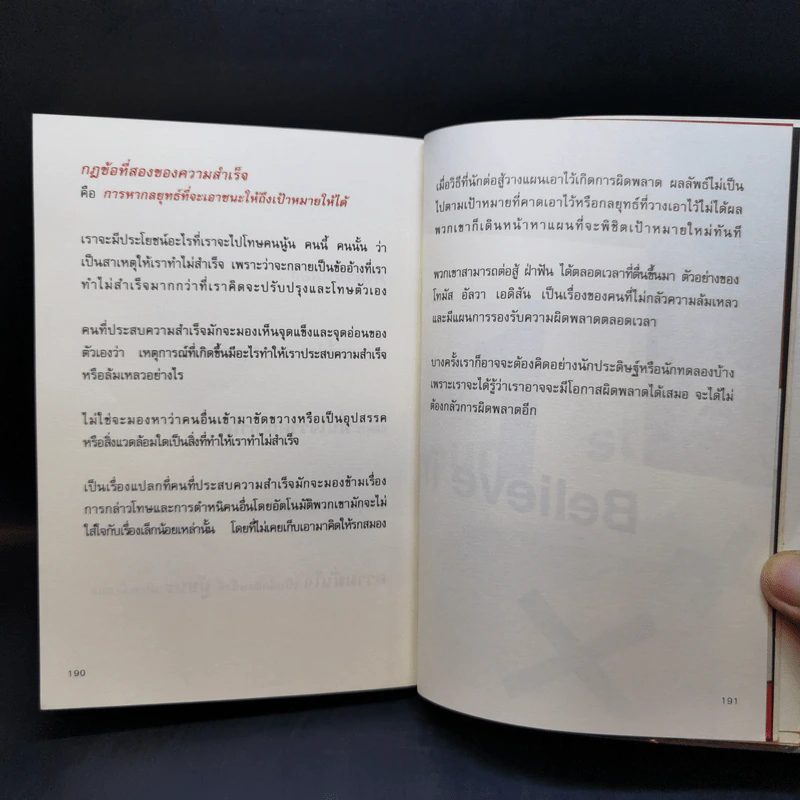 กฎข้อที่สองของความสำเร็จ
คือ การหากลยุทธ์ที่จะเอาชนะให้ถึงเป้าหมายให้ได้
เราจะมีประโยชน์อะไรที่เราจะไปโทษคนนู้น คนนี้ คนนั้น ว่า
เป็นสาเหตุให้เราทำไม่สำเร็จ เพราะว่าจะกลายเป็นข้ออ้างที่เรา
ทำไม่สำเร็จมากกว่าที่เราคิดจะปรับปรุงและโทษตัวเอง
คนที่ประสบความสำเร็จมักจะมองเห็นจุดแข็งและจุดอ่อนของ
ตัวเองว่า เหตุการณ์ที่เกิดขึ้นมีอะไรทำให้เราประสบความสำเร็จ
หรือล้มเหลวอย่างไร
ไม่ใช่จะมองหาว่าคนอื่นเข้ามาขัดขวางหรือเป็นอุปสรรค
หรือสิ่งแวดล้อมใดเป็นสิ่งที่ทำให้เราทำไม่สำเร็จ
เป็นเรื่องแปลกที่คนที่ประสบความสำเร็จมักจะมองข้ามเรื่อง
การกล่าวโทษและการตำหนิคนอื่นโดยอัตโนมัติพวกเขามักจะไม่
ใส่ใจกับเรื่องเล็กน้อยเหล่านั้น โดยที่ไม่เคยเก็บเอามาคิดให้รกสมอง
190
เมื่อวิธีที่นักต่อสู้วางแผนเอาไว้เกิดการผิดพลาด ผลลัพธ์ไม่เป็น
ไปตามเป้าหมายที่คาดเอาไว้หรือกลยุทธ์ที่วางเอาไว้ไม่ได้ผล
พวกเขาก็เดินหน้าหาแผนที่จะพิชิตเป้าหมายใหม่ทันที
พวกเขาสามารถต่อสู้ ฝ่าฟัน ได้ตลอดเวลาที่ตื่นขึ้นมา ตัวอย่างของ
โทมัส อัลวา เอดิสัน เป็นเรื่องของคนที่ไม่กลัวความล้มเหลว
และมีแผนการรองรับความผิดพลาดตลอดเวลา
บางครั้งเราก็อาจจะต้องคิดอย่างนักประดิษฐ์หรือนักทดลองบ้าง
เพราะเราจะได้รู้ว่าเราอาจจะมีโอกาสผิดพลาดได้เสมอ จะได้ไม่
ต้องกลัวการผิดพลาดอีก
Believe
191